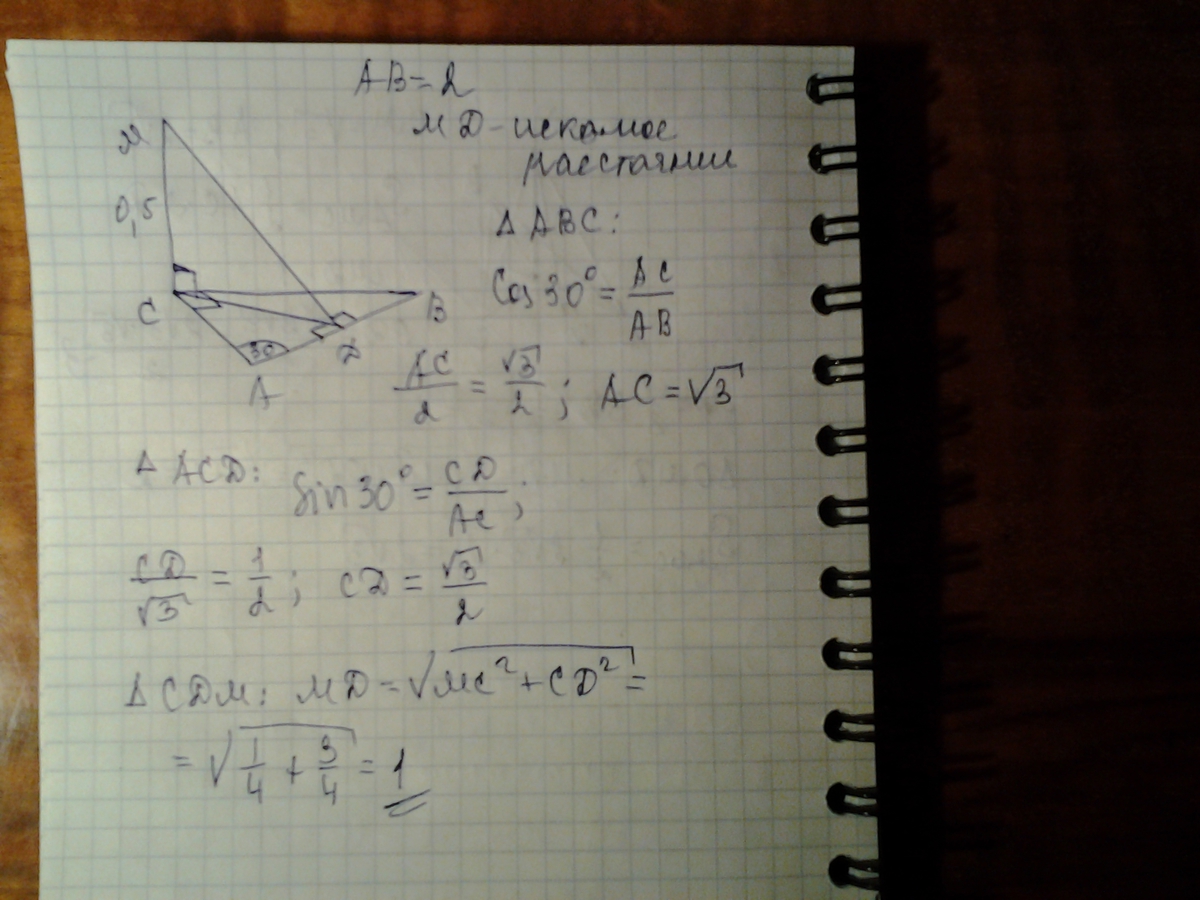 AB = 2
MD - искомое
расстояние
M
0,5
C
B
30
D
A
Δ ABC:
Cos 30° = AC/AB
AC/2 = √3/2 ; AC = √3
Δ ACD: Sin 30° = CD/AC ;
CD/√3 = 1/2 ; CD = √3/2
Δ CDM: MD = √(MC² + CD²) =
= √(1/4 + 3/4) = 1